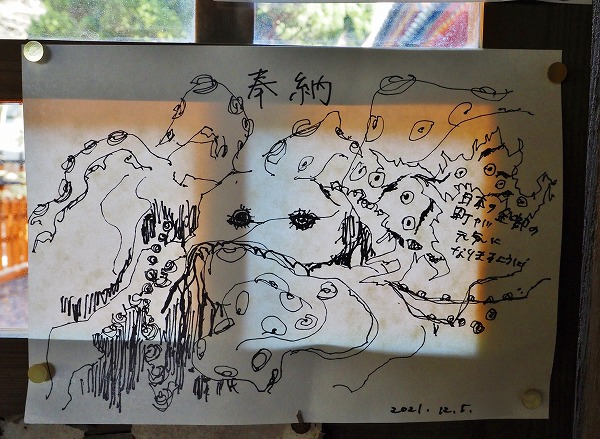 奉納
日本の全部の
町が
元気に
なりますように
2021.12.5.